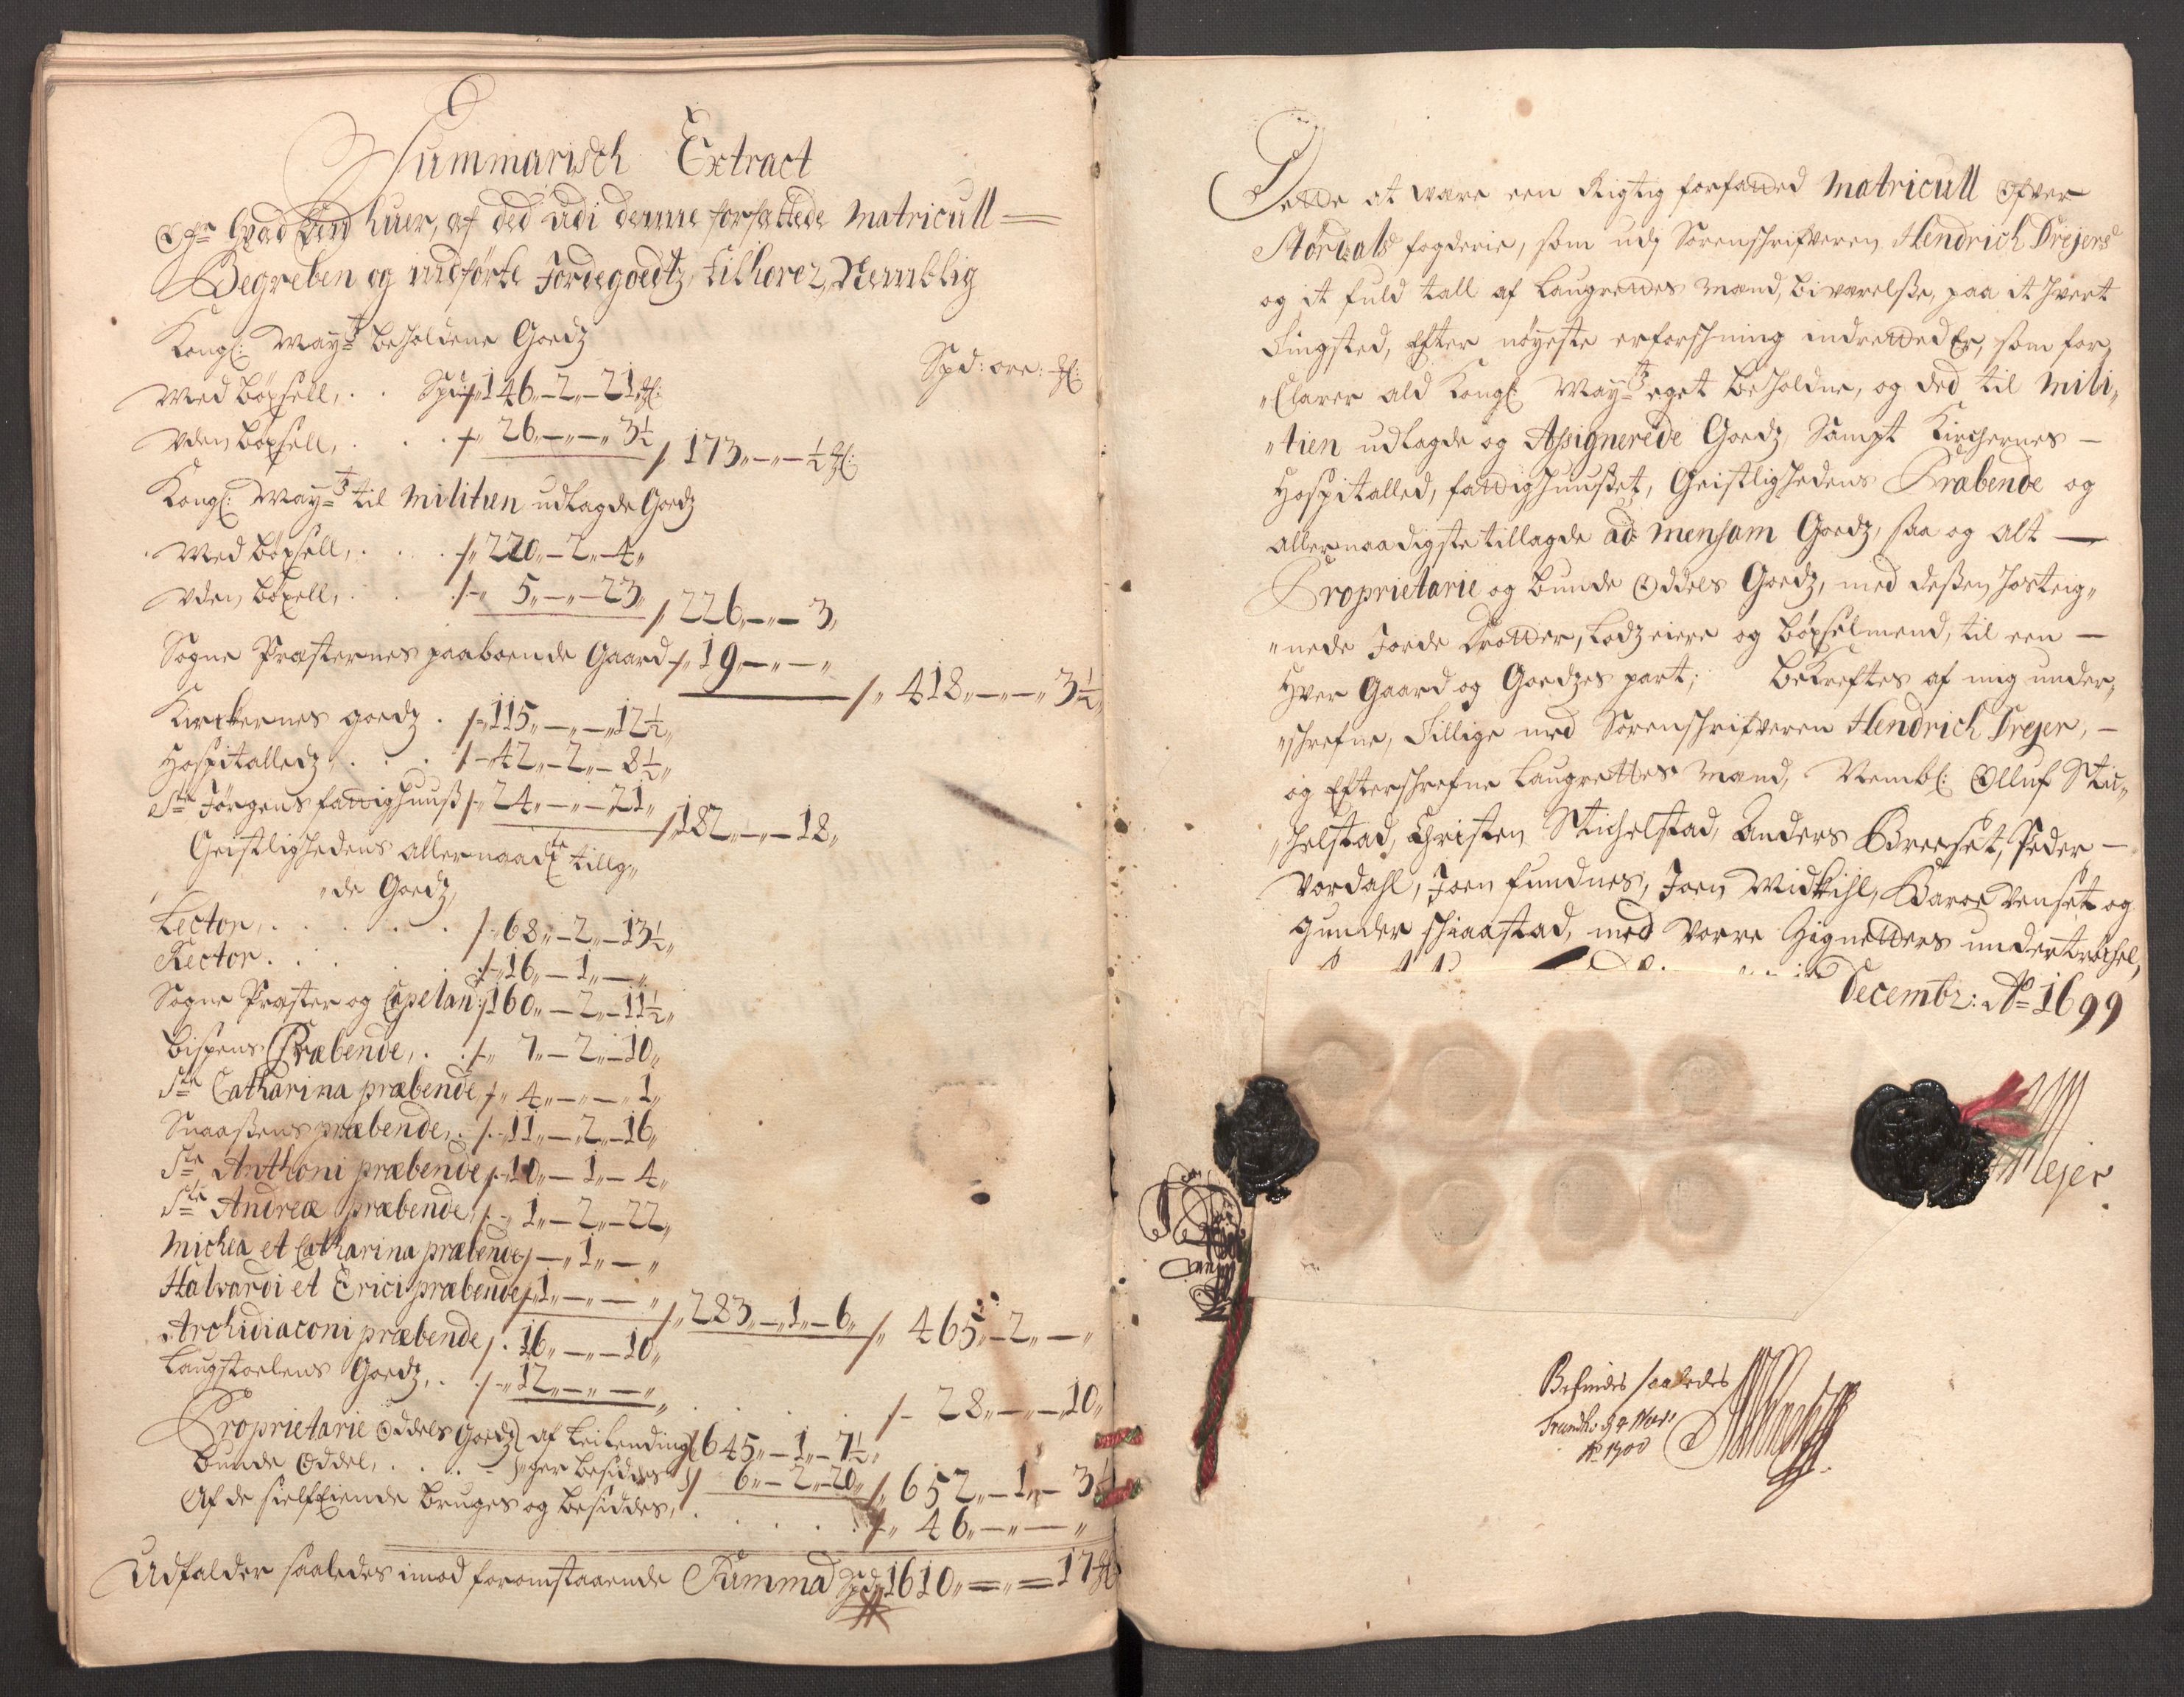 Summarisch Extract
Ofr hvad En huer, af ded udi denne forfattede Matricull
Begreben og indförte Jordegoedtz, tilhorer, Nemblig
Kongl: Mayts beholdene Goedz
Spd: ore: 
Med böxsell, . . Spd 146 - 2 - 21
Uden böxsell, . . . 26 - " - 3½ / 173 - " - ½
Kongl: Mayts til Militien udlagde Goedz
Med böxsell, . . . 220 - 2 - 4
Uden böxell, . . . 5 - " - 23 / 226 - " - 3
Sogne Præsternes paaboende Gaard 19 - " - "
/ 418 - " - 3½
Kirckernes goedz . 115 - " - 12½
Hospitalledz . . . 42 - 2 - 8½
Ste Jörgens fattighuuß 24 - " - 21 / 182 - " - 18
Geistlighedens allernaadte tillg„
„de Goedz,
Lector, . . . . . 68 - 2 - 13½
Rector . . . . . 16 - 1 - "
Sogne Præster og Capelan: 160 - 2 - 11½
Bispens Præbende, . . 7 - 2 - 10
Ste Catharina præbende 4 - " - 1
Snaaßens præbende, . 11 - 2 - 16
Ste Anthoni præbende 10 - 1 - 4
Ste Andreæ præbende, 1 - 2 - 22
Michea et Catharina præbende - 1 - "
Halvardi et Erici præbende 1 - " - "
/ 283 - 1 - 6 / 465 - 2 - "
Archidiaconi præbende . 16 - " - 10
Laugstoelens Goedz, . . 12 - " - "
/ 28 - " - 10
Proprietarie Oddels Goedz af Leilending 645 - 1 - 7½
Bunde Oddel, . . . ger besiddes 6 - 2 - 20 / 652 - 1 - 3½
Af de sielffeiende bruges og besiddes, . . . . 46 - " - "
Udfalder saaledes imod foromstaaende Summa Spd 1610 = " = 17
Dette at være een Rigtig forfatted Matricull Ofver
Stördals fogderie, som udj Sorenschrifveren Hendrich Drejers
og it fuld tall af Laugrettes Mænd, biværelße, paa it hvert
Tingsted, efter nöyeste erforschning indretted Er, som for„
„Clarer ald Kongl: Mayts eget beholdne, og ded til Mili„
„tien udlagde og Assignerede Goedz, Sampt Kirchernes -
Hospitalled, fattighuußet, Geistlighedens Præbende og
allernaadigste tillagde ad mensam Goedz, saa og alt -
Proprietarie og bunde Oddels Goedz, med deßen hosteig„
„nede Jorde Drotter, Lodzeiere og böxselmend, til een -
Hver Gaard og Goedzes part; Bekreftes af mig under„
„schrefne, Tillige med Sorenschrifveren Hendrich Drejer, -
og Efterschrefne Laugrettes Mænd, Nembl: Olluf Stic„
„helstad, Christen Stichelstad, Anders Breeset, Peder -
Vordahl, Joen fundnes, Joen Midkihl, Baroe Venset og
Gunder Schiaastad, med vorre Zignetters undertröchel,
Decembr: Ao 1699
Befindes saaledes
Trundh: d 4 Mars
Ao 1700